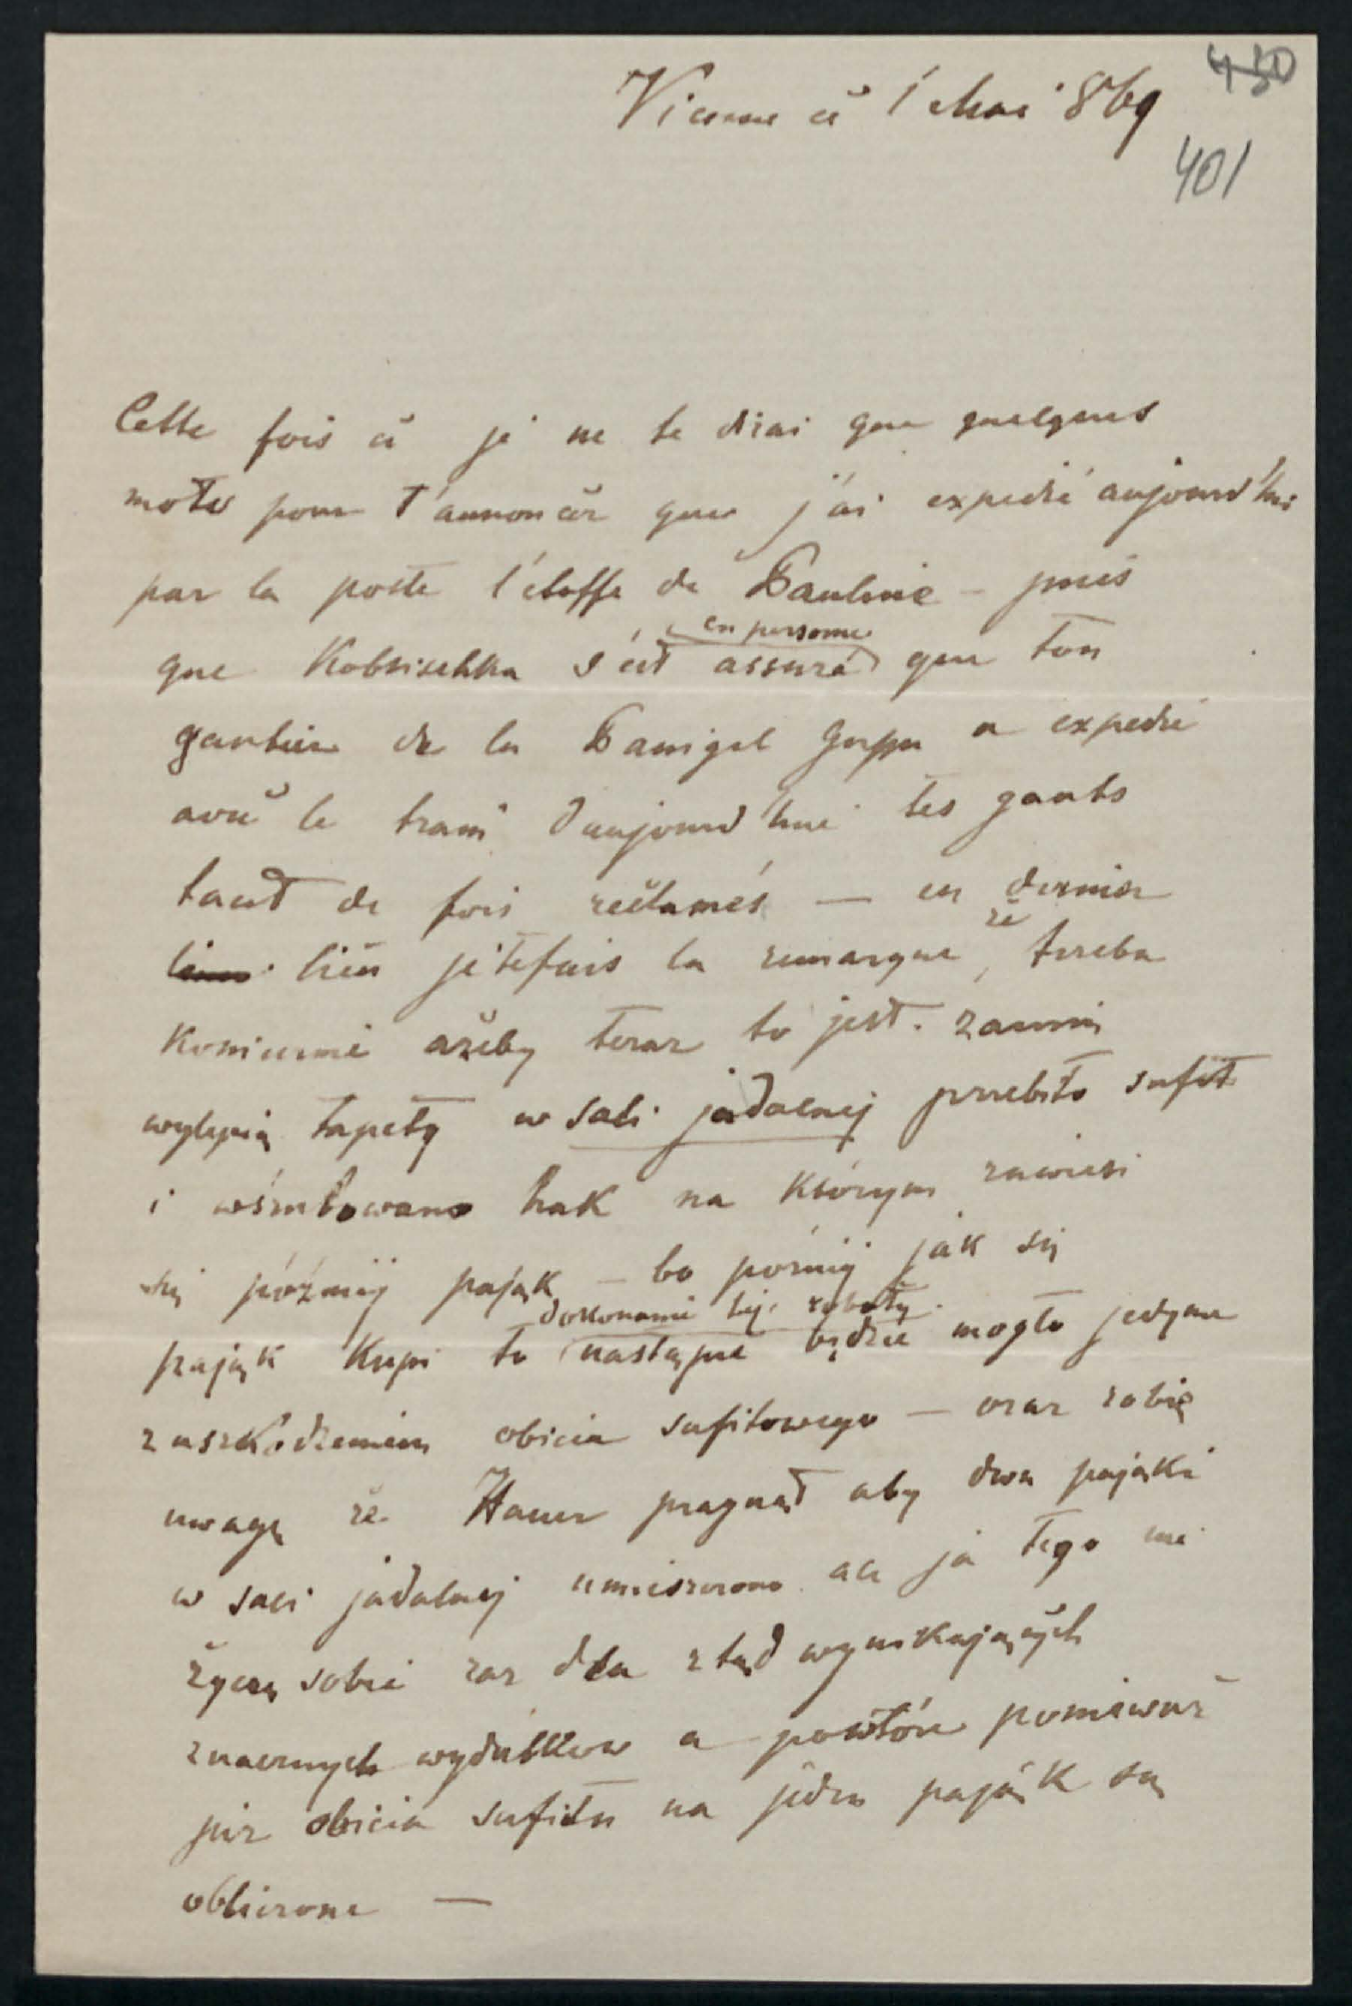 Vienne ce 1 Mai 869
430
401
Cette fois ci je ne te dirai que quelques
mots pour t'annoncer que j'ai expedié aujourd'hui
par la poste l'étoffe de Pauline – puis
que s'est assuré en personne que ton
gantier de la a expedié
avec le train d'aujourd'hui tes gants
tant de fois reclamés — en dernier
lieu je te fais la remarque że trzeba
koniecznie ażeby teraz to jest zanim
wylepią tapety w sali jadalnej przebito sufit
i wśrubowano hak na którym zawiesi
się późnij pająk – bo późnij jak się
pająk kupi to dokonanie tej roboty nastąpić będzie mogło jedynie
z uszkodzeniem obicia sufitowego — oraz robię
uwagę że Hauer pragnął aby dwa pająki
w sali jadalnej umieszczono ale ja tego nie
życzę sobie raz dla ztąd wynikających
znacznych wydatków a powtóre ponieważ
już obicia sufitu na jeden pająk są
obliczone —